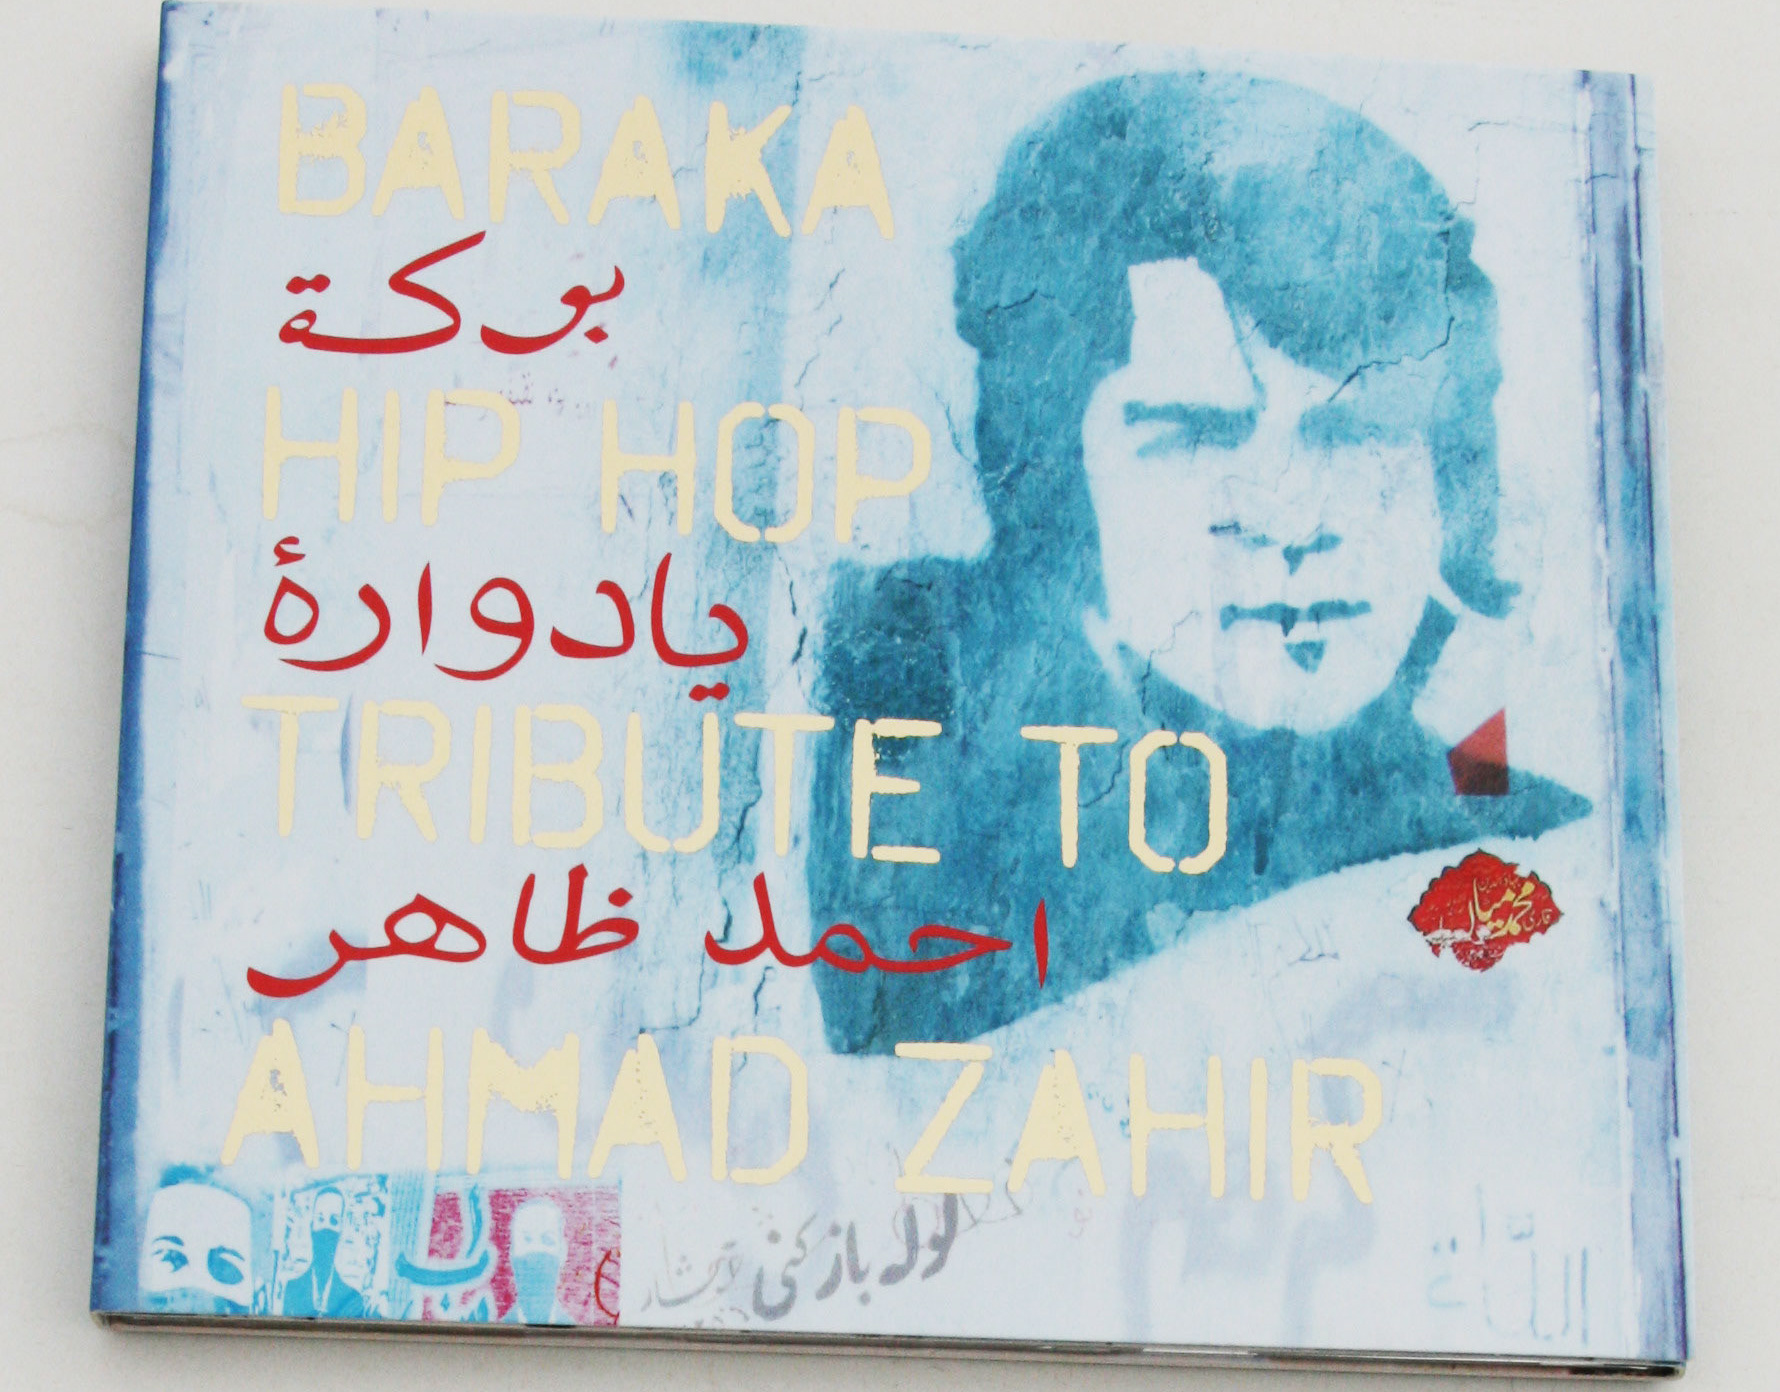 BARAKA
بركة
HIP HOP
يادوارۀ
TRIBUTE TO
احمد ظاهر
AHMAD ZAHIR
لوله باز کنی